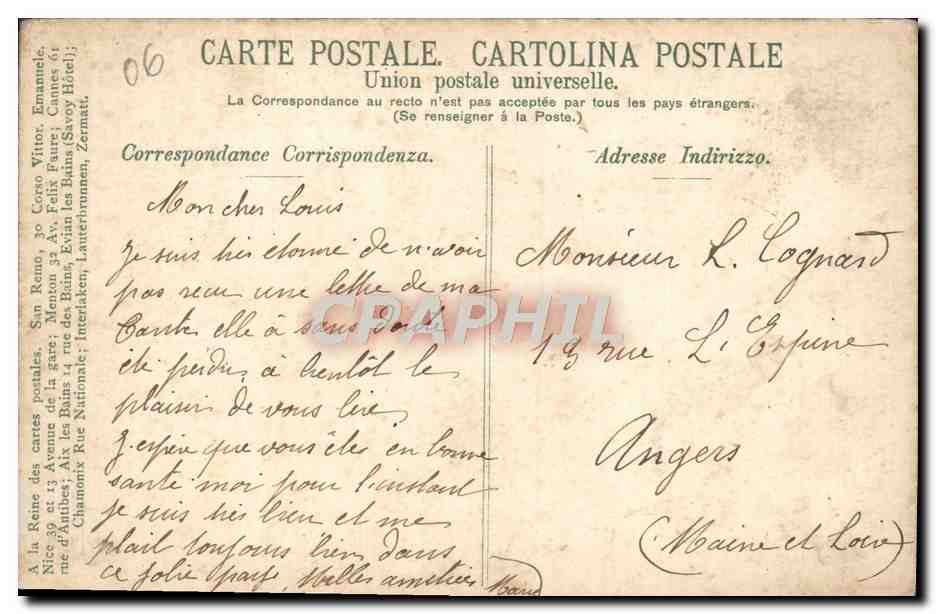 CARTE POSTALE. CARTOLINA POSTALE
Union postale universelle.
La Correspondance au recto n'est pas acceptée par tous les pays étrangers.
(Se renseigner à la Poste.)
06
Correspondance Corrispondenza.
Mon cher Louis
Je suis très étonné de n'avoir
pas reçu une lettre de ma
Tante elle à sans doute
été perdue, à bientôt le
plaisir de vous lire
J'espère que vous êtes en bonne
santé moi pour l'instant
je suis très bien et me
plait toujours bien dans
ce jolie pays, Milles amitiées
Adresse Indirizzo.
Monsieur L. Cognard
13 rue L'Espine
Angers
(Maine et Loire)
A la Reine des cartes postales. San Remo, 30 Corso Vittor. Emanuele.
Nice 39 et 13 Avenue de la gare; Menton 32 Av. Felix Faure; Cannes 61
rue d'Antibes; Aix les Bains 14 rue des Bains, Evian les Bains (Savoy Hôtel);
Chamonix Rue Nationale; Interlaken, Lauterbrunnen, Zermatt.
CPAPHIL